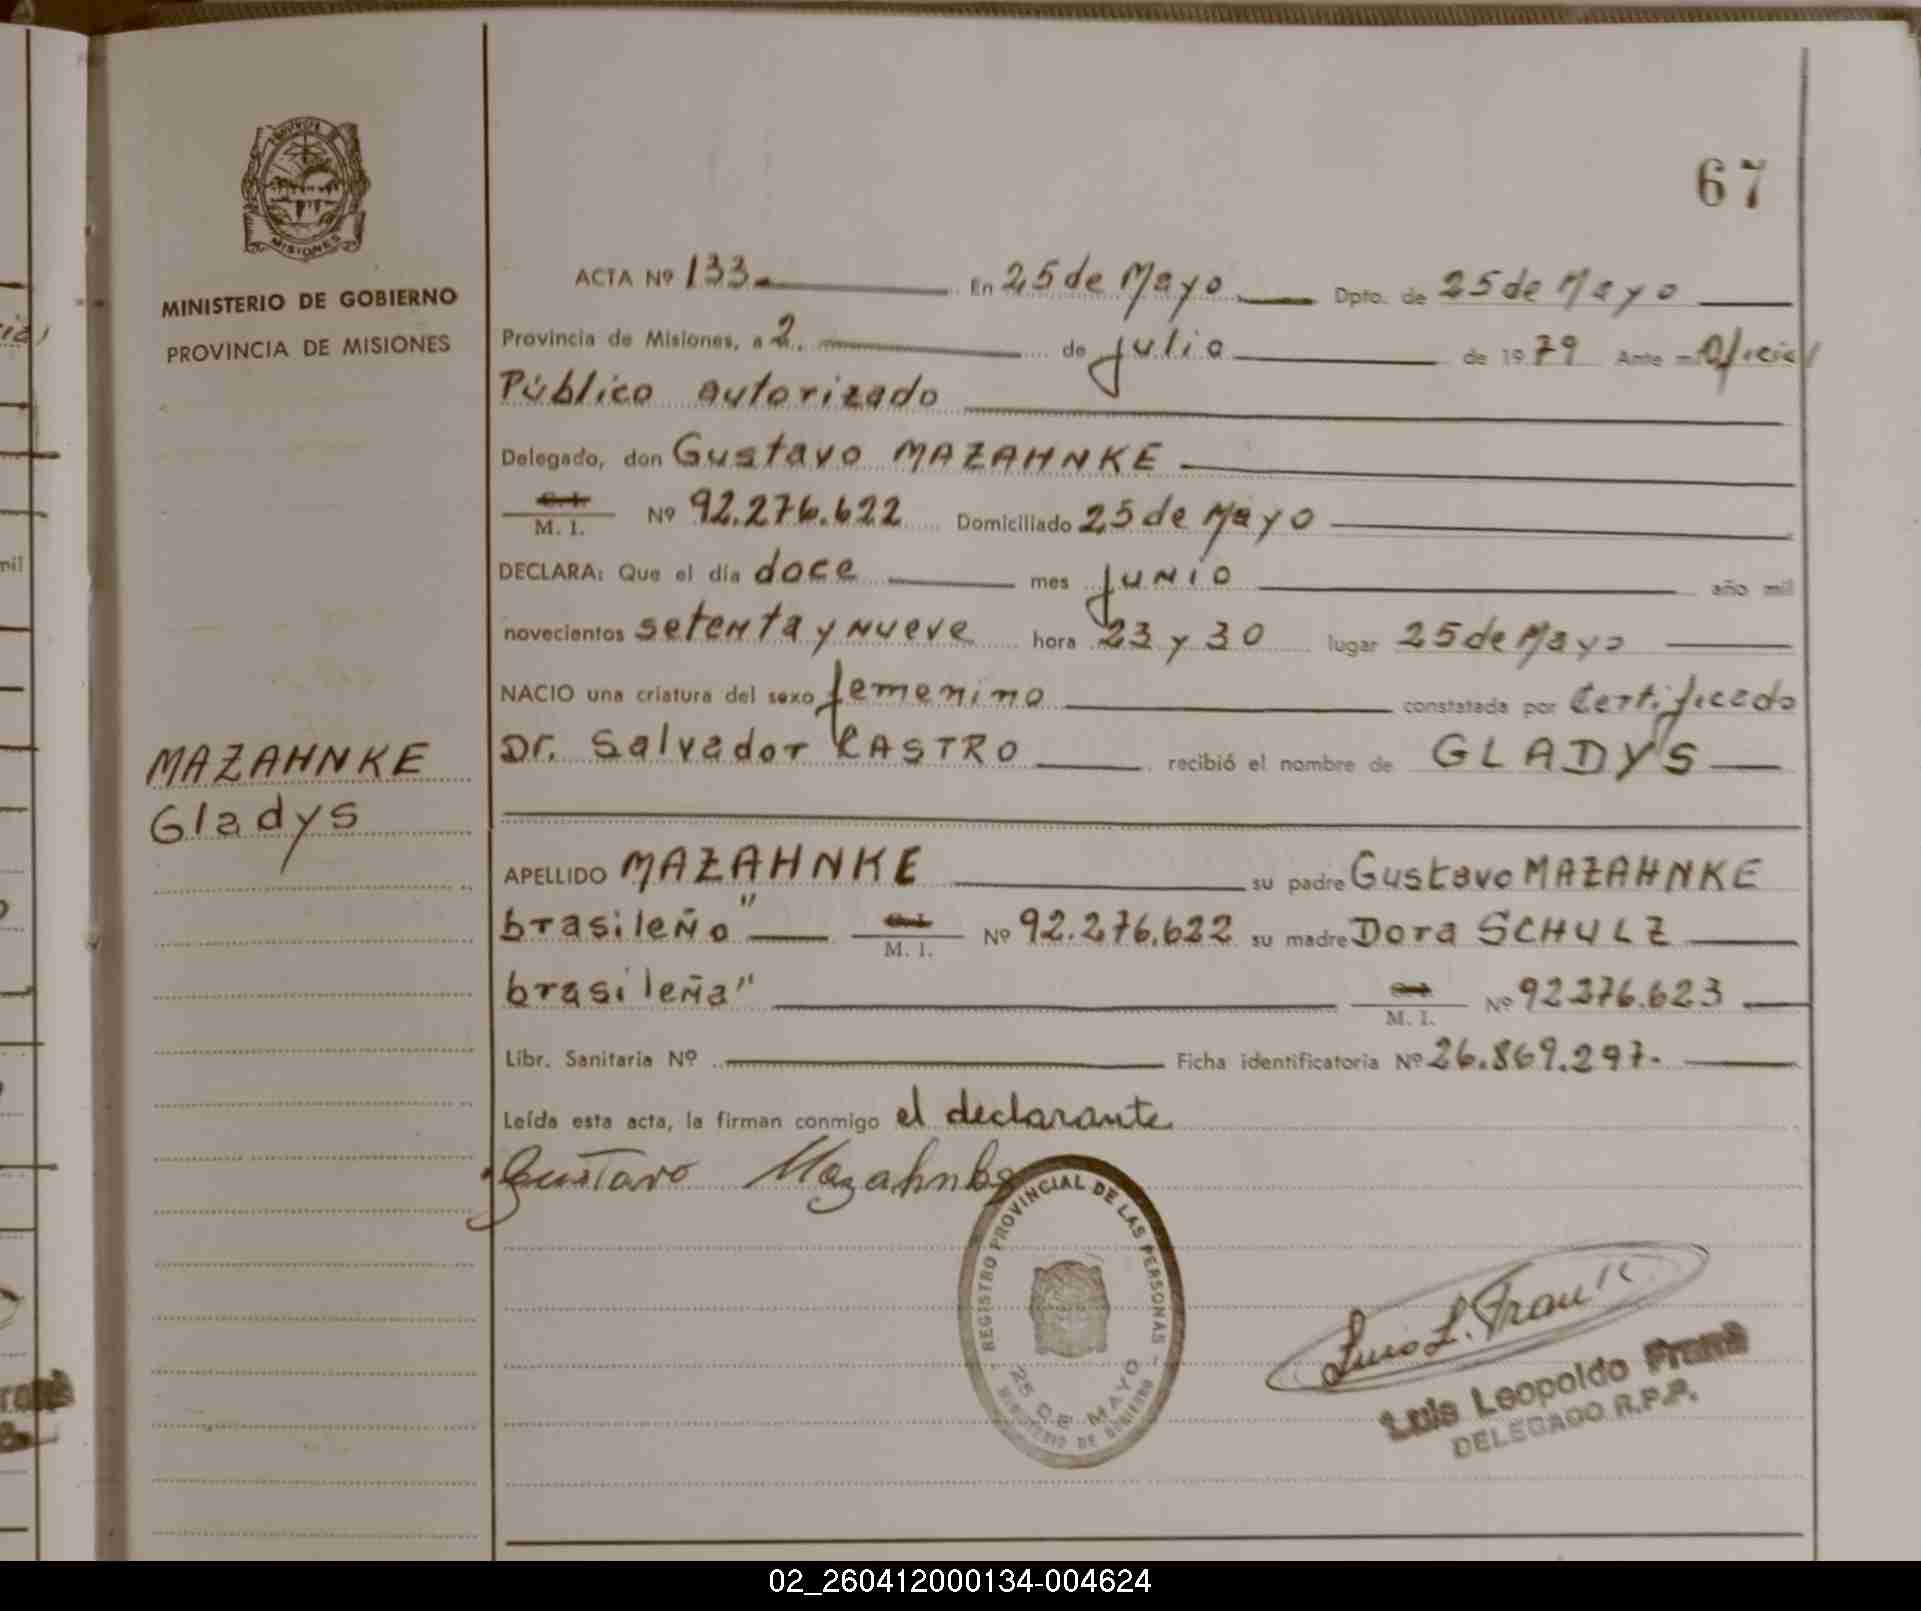 67
PROVINCIA DE
MISIONES
MINISTERIO DE GOBIERNO
PROVINCIA DE MISIONES
ACTA Nº 133. En 25 de Mayo Dpto. de 25 de Mayo
Provincia de Misiones, a 2. de julio de 1979 Ante mí Oficial
Público autorizado
Delegado, don Gustavo MAZAHNKE
C. I.
M. I. Nº 92.276.622 Domiciliado 25 de Mayo
DECLARA: Que el día doce mes junio año mil
novecientos setenta y nueve hora 23 y 30 lugar 25 de Mayo
NACIO una criatura del sexo femenino constatada por Certificado
Dr. Salvador CASTRO recibió el nombre de GLADYS
MAZAHNKE
Gladys
APELLIDO MAZAHNKE su padre Gustavo MAZAHNKE
brasileño" C. I. M. I. Nº 92.276.622 su madre Dora SCHULZ
brasileña" C. I. M. I. Nº 92376.623
Libr. Sanitaria Nº Ficha identificatoria Nº 26.869.297.
Leída esta acta, la firman conmigo el declarante
Gustavo Mazahnke
REGISTRO PROVINCIAL DE LAS PERSONAS
25 DE MAYO
MINISTERIO DE GOBIERNO
Luis L. Franí
Luis Leopoldo Franá
DELEGADO R.P.P.
mil
02_260412000134-004624